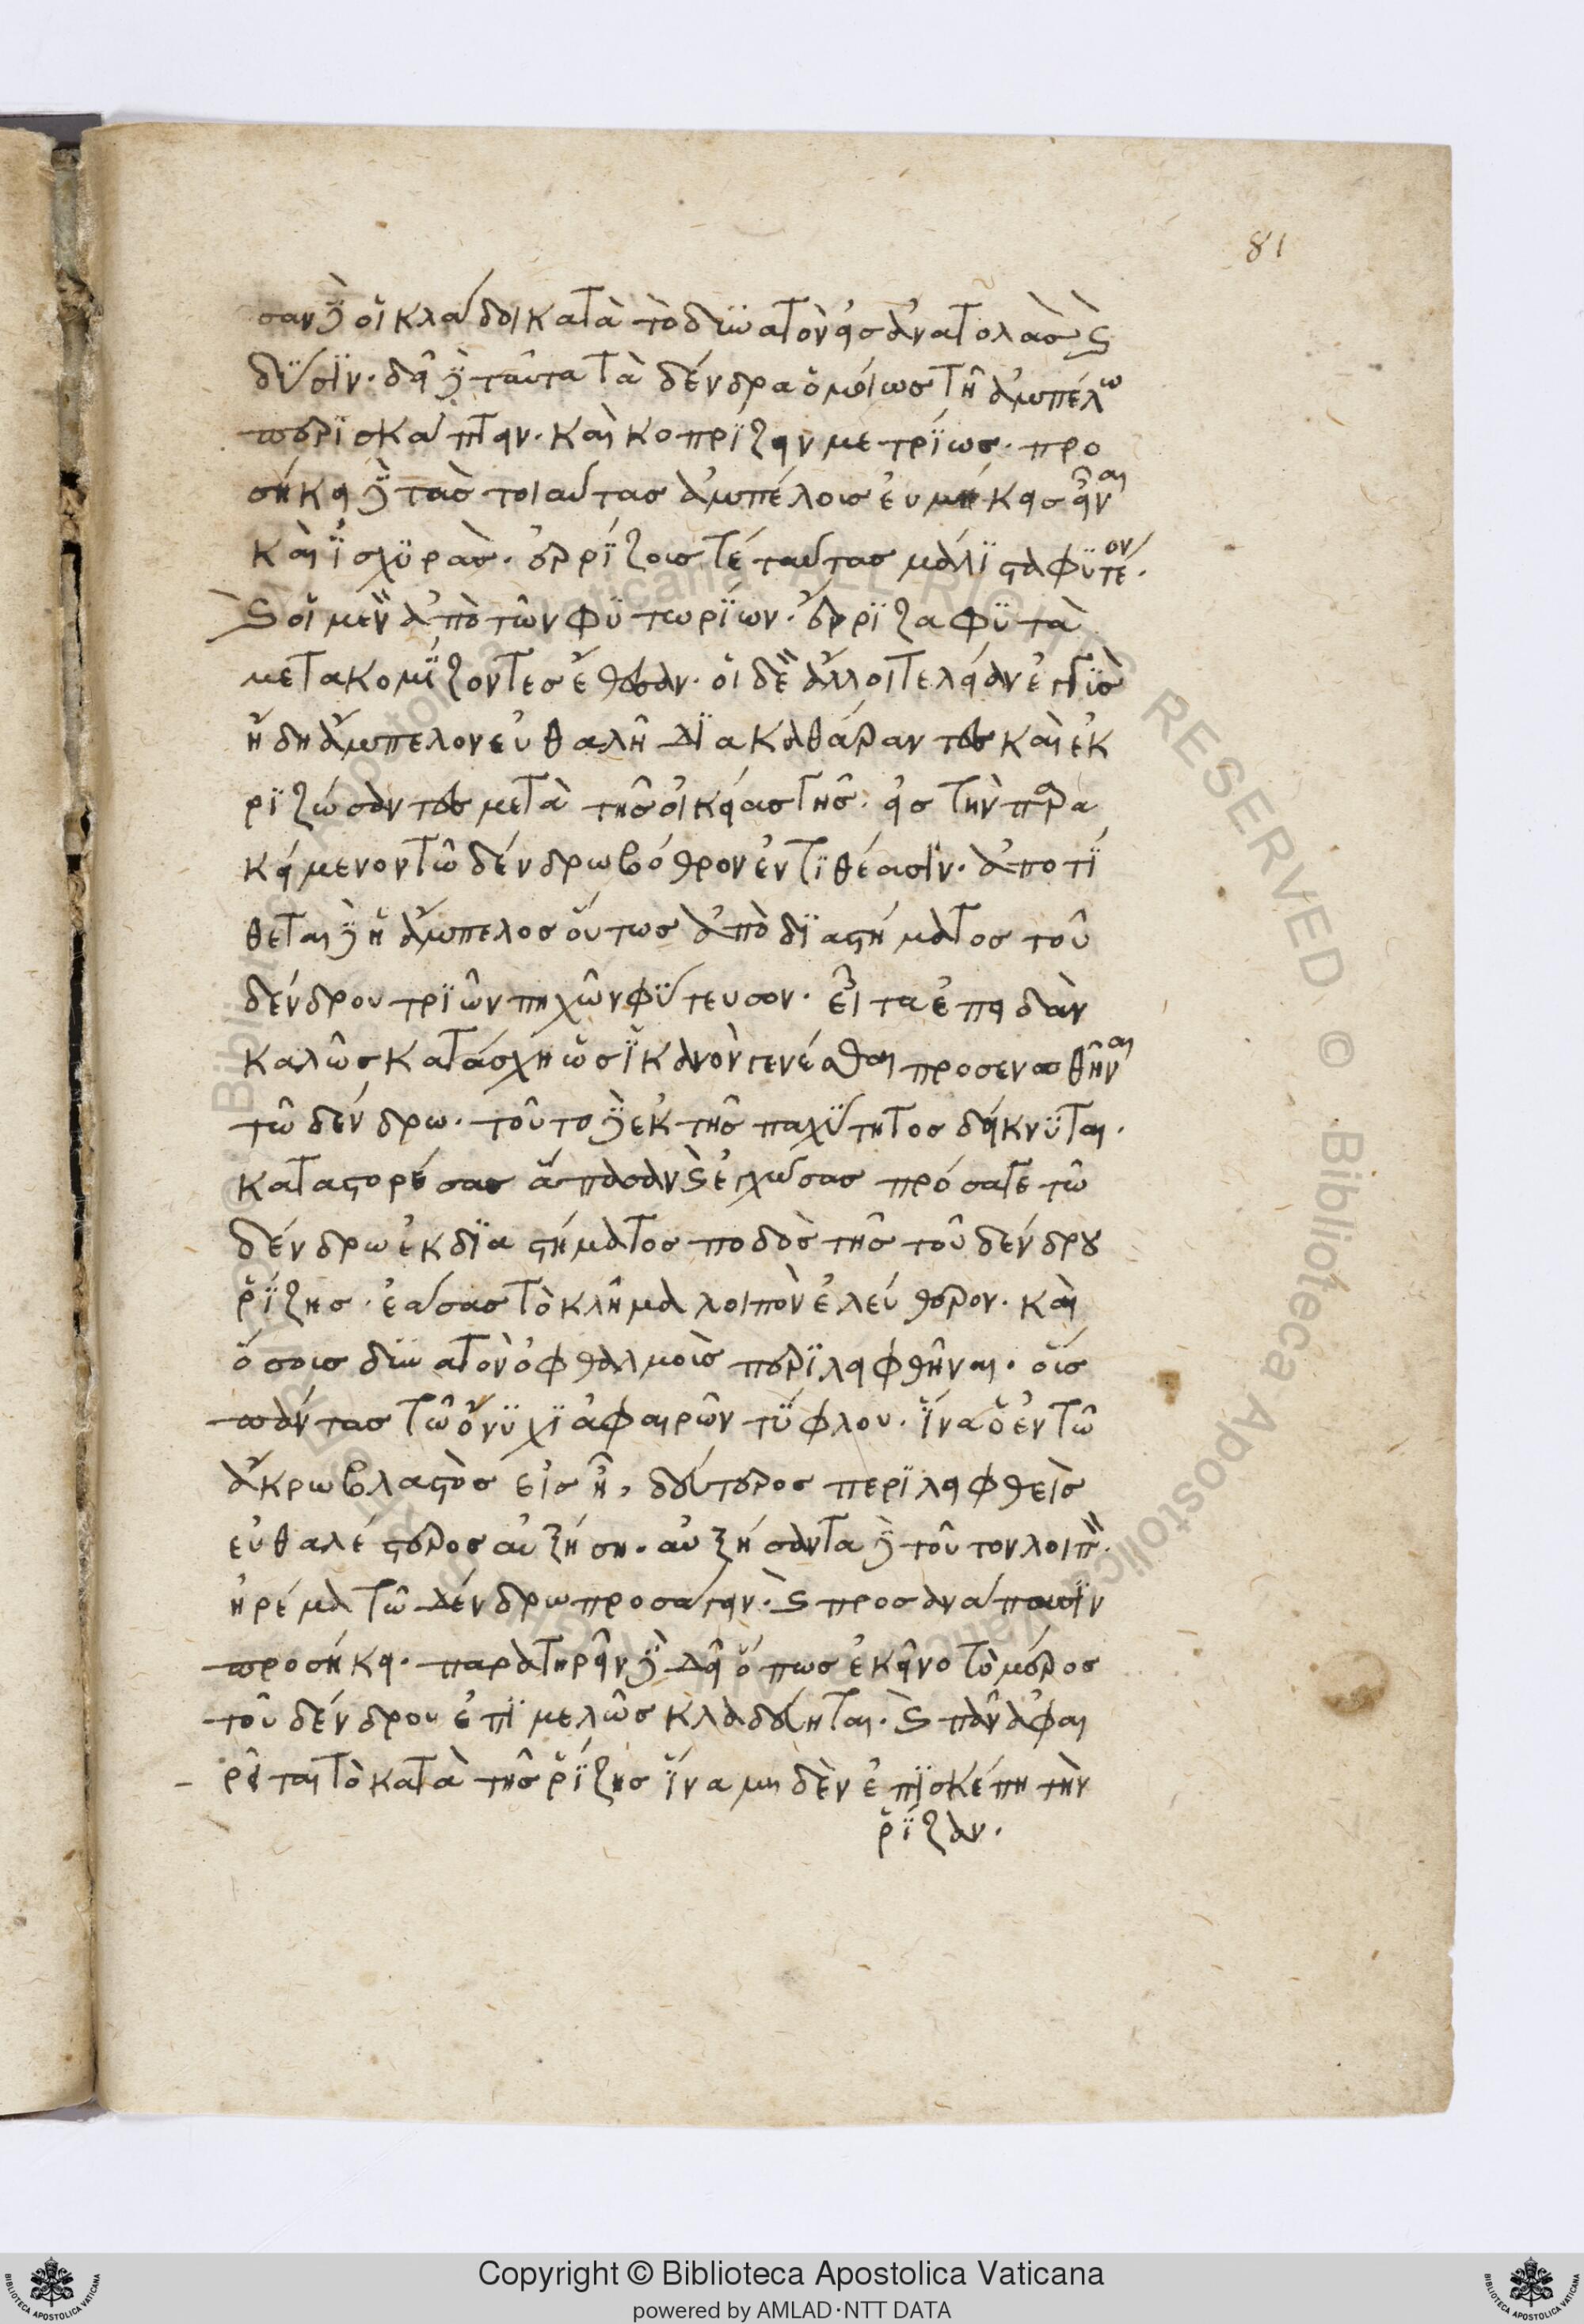 81
σαν δὲ οἱ κλάδοι κατὰ τὸ δυνατὸν εἰς ἀνατολὰς καὶ
δύσιν. δεῖ δὲ ταῦτα τὰ δένδρα ὁμοίως τῆ ἀμπέλω
περισκάπτειν. καὶ κοπρίζειν μετρίως. προ
σήκει δὲ τὰς τοιαύτας ἀμπέλους εὐμήκεις εἶναι
καὶ ἰσχυρὰς. ἐρρίζους τέ ταύτας μάλιστα φυτέον.
καὶ οἱ μὲν ἀπὸ τῶν φυτωρίων. ἔρριζα φυτὰ
μετακομίζοντες ἔθεσαν. οἱ δὲ ἄλλοι τελείαν ἐστὶν
ἤδη ἄμπελον εὐθαλῆ διακαθάραντες καὶ ἐκ
ριζώσαντες μετὰ τῆς οἰκείας γῆς. εἰς τὴν παρα
κείμενον τῶ δένδρω βόθρον ἐντιθέασιν. ἀποτί
θεται δὲ ἡ ἄμπελος οὕτως ἀπὸ διαστήματος τοῦ
δένδρου τριῶν πηχῶν φύτευσον. εἶτα ἐπειδὰν
καλῶς κατάσχη ὡς ἱκανὸν γενέσθαι προσενωθῆναι
τῶ δένδρω. τοῦτο δὲ ἐκ τῆς παχύτητος δείκνυται.
καταστορέσας ἅπασαν καὶ ἐγχώσας πρόσαγε τῶ
δένδρω ἐκ διαστήματος ποδὸς τῆς τοῦ δένδρου
ῥίζης. ἐάσας τὸ κλῆμα λοιπὸν ἐλεύθερον. καὶ
ὅσους δυνατὸν ὀφθαλμοὺς περιλειφθῆναι. οὓς
πάντας τῶ ὄνυχι ἀφαιρῶν τύφλου. ἵνα ὁ ἐν τῶ
ἄκρω βλαστὸς εἷς ἢ, δεύτερος περιλειφθεὶς
εὐθαλέστερος αὐξήση. αὐξήσαντα δὲ τοῦτον λοιπὸν.
ἠρέμα τῶ δένδρω προσάγειν. καὶ προσαναπαύειν
προσήκει. παρατηρεῖν δὲ δεῖ ὅπως ἐκεῖνο τὸ μέρος
τοῦ δένδρου ἐπιμελῶς κλαδεύηται. καὶ πᾶν ἀφαι
ρεῖται τὸ κατὰ τῆς ῥίζης ἵνα μηδὲν ἐπισκέπη τὴν
ῥίζαν.
Copyright © Biblioteca Apostolica Vaticana
powered by AMLAD·NTT DATA